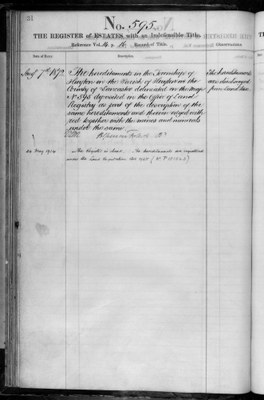 31
No. 595.
THE REGISTER of ESTATES with an Indefeasible Title.
Reference Vol. 16 p. 16 Record of Title.
Date of Entry. Description. Observations
Augt 7th 1872 The hereditaments in the Township of
in the Parish of in the
County of Lancaster delineated on the Map
No 595 deposited in the Office of Land
Registry as part of the description of the
same hereditaments and thereon edged with
red together with the mines and minerals
under the same
The hereditaments
are discharged
from Land Tax
22 May 1914 This Register is closed. The hereditaments are registered
under the Land Registration Act 1897